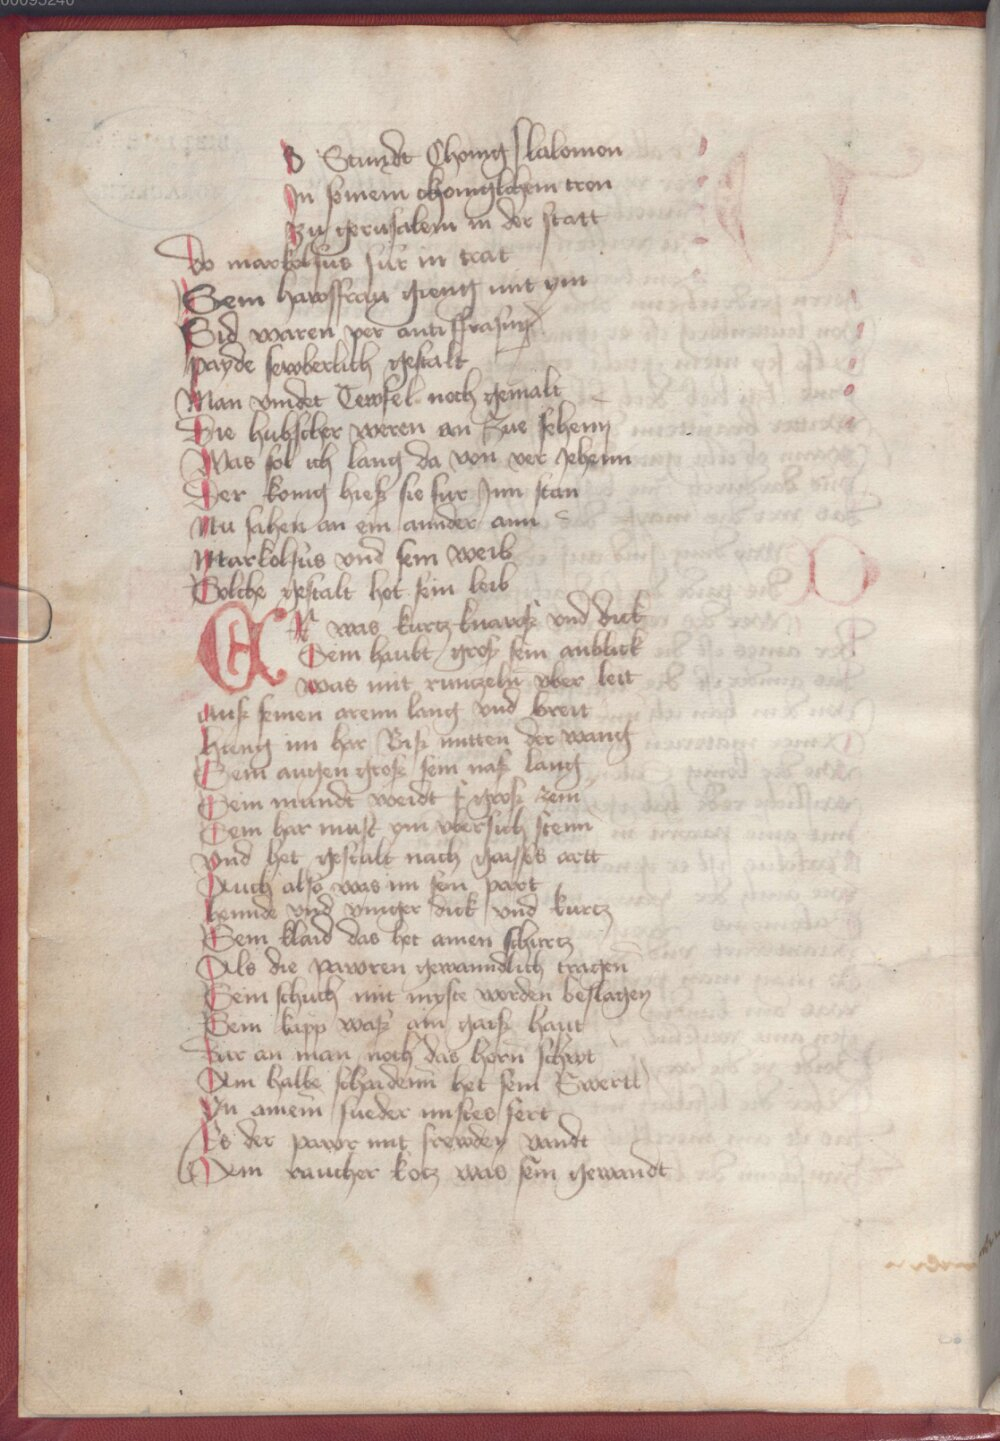 S Stundt Chonig Salomon
In seinem choniglichem tron
Zu gerusalem in der statt
Do markolfus fur in trat
Sein hawsfraw gieng mit ym
Sid waren per antiffrasim
payde sewberlich gestalt
Man vindet Tewfel noch gemalt
Die hubscher weren an Zue sehenn
Was sol ich lang da von ver Jehenn
Der konig hiess sie fur Jnn stan
Nu sahen an ein annder ann
Markolfus vnd sein weib
Solche gestalt het sein leib
Er was kurtz knawrs vnd dick
Sein haubt gros sein anblick
was mit runczeln vber leit
auss seinen orenn lang vnd breit
hieng im har Biss mitten der wang
Sein augen gross sein nass lang
Sein mundt weidt gross zenn
Sein har must ym vbersich stenn
vnd het gestalt nach gaisses artt
Auch also was im sein part
hennde vnd vinger dick vnd kurtz
Sein klaid das het ainen schurtz
Als die pawren gewanndlich tragen
Sein schuch mit myste worden beslagen
Sein kapp wass ain gaiss haut
Dar an man noch das horn schawt
Ain halbe schaidenn het sein Swertt
In ainem fueder mistes fert
Es der pawr mit frewden vandt
Dein raucher kotz was sein gewandt